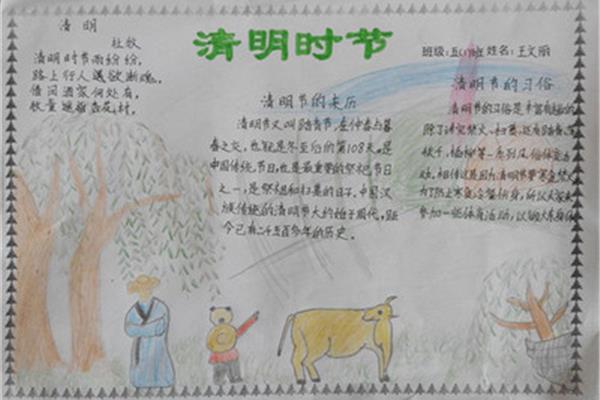 清明
杜牧
清明时节雨纷纷,
路上行人欲断魂。
借问酒家何处有,
牧童遥指杏花村。
清明时节
班级:五(1)班 姓名:王文丽
清明节的来历
清明节又叫踏青节,在仲春与暮
春之交,也就是冬至后的第108天,是
中国传统节日,也是最重要的祭祀节日
之一,是祭祖和扫墓的日子。中国汉
族传统的清明节大约始于周代,距
今已有二千五百多年的历史。
清明节的习俗
清明节的习俗是丰富有趣的
除了讲究禁火、扫墓,还有踏青、荡
秋千、插柳等一系列风俗体育活
动。相传这是因为清明节要寒食禁火
为了防止寒食冷餐伤身,所以大家来
参加一些体育活动,以锻炼身体